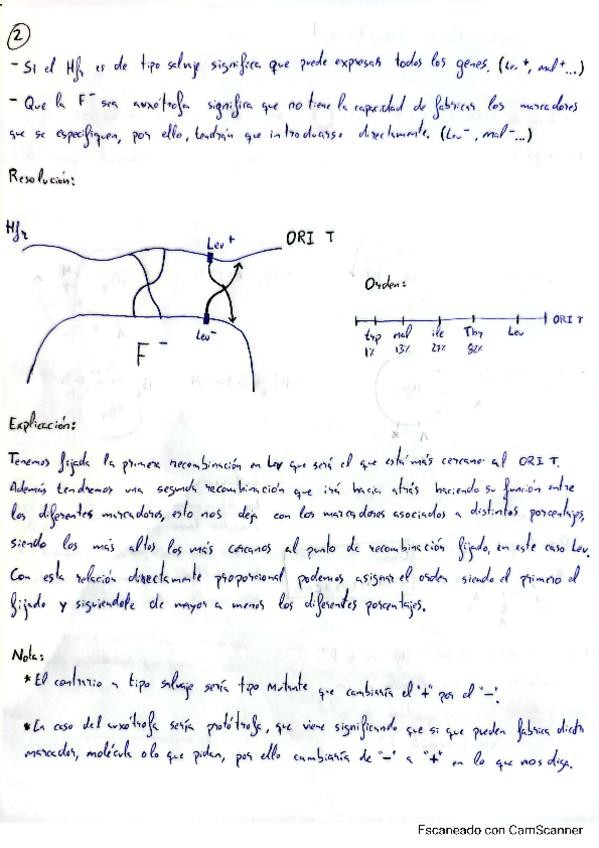 2
- Si el Hfr es de tipo salvaje significa que puede expresar todos los genes. (Leu+, mal+...)
- Que la F- sea auxótrofa significa que no tiene la capacidad de fabricar los marcadores
que se especifiquen, por ello, tendrán que introducirse directamente. (Leu-, mal-...)
Resolución:
Hfr
Leu+
ORI T
Leu-
F-
Orden:
trp mal ile Thr Leu ORI T
1% 13% 27% 82%
Explicación:
Tenemos fijada la primera recombinación en Leu que será el que está más cercano al ORI T.
Además tendremos una segunda recombinación que irá hacia atrás haciendo su función entre
los diferentes marcadores, esto nos deja con los marcadores asociados a distintos porcentajes,
siendo los más altos los más cercanos al punto de recombinación fijado, en este caso Leu.
Con esta relación directamente proporcional podemos asignar el orden siendo el primero el
fijado y siguiendole de mayor a menos los diferentes porcentajes.
Nota:
* El contrario a tipo salvaje sería tipo mutante que cambiaría el "+" por el "-".
* En caso del auxótrofa sería protótrofa, que viene significando que si que pueden fabrica dicho
marcador, molécula o lo que pidan, por ello cambiaría de "-" a "+" en lo que nos diga.
Escaneado con CamScanner